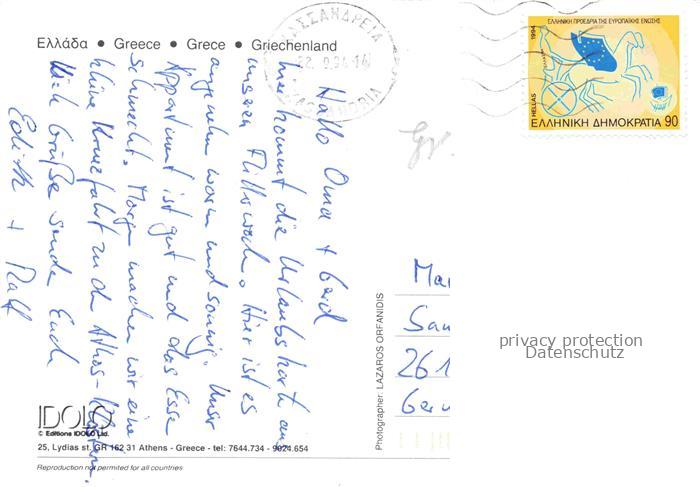 Ελλάδα • Greece • Grece • Griechenland
ΚΑΣΣΑΝΔΡΕΙΑ
KASSANDRIA
ΕΛΛΗΝΙΚΗ ΠΡΟΕΔΡΙΑ ΤΗΣ ΕΥΡΩΠΑΪΚΗΣ ΕΝΩΣΗΣ
1994
HELLAS
ΕΛΛΗΝΙΚΗ ΔΗΜΟΚΡΑΤΙΑ 90
Hallo Oma + Gerd
hier kommt die Urlaubskarte aus
unseren Flitterwochen. Hier ist es
angenehm warm und sonnig. Unser
Appartment ist gut und das Essen
schmeckt. Morgen machen wir eine
kleine Kreuzfahrt zu den Athos-Klöstern.
Viele Grüße senden Euch
Edith + Ralf
Photographer: LAZAROS ORFANIDIS
Mar
San
261
Ger
privacy protection
Datenschutz
IDOLO
© Editions IDOLO Ltd.
25, Lydias st. GR 162 31 Athens - Greece - tel: 7644.734 - 9024.654
Reproduction not permited for all countries